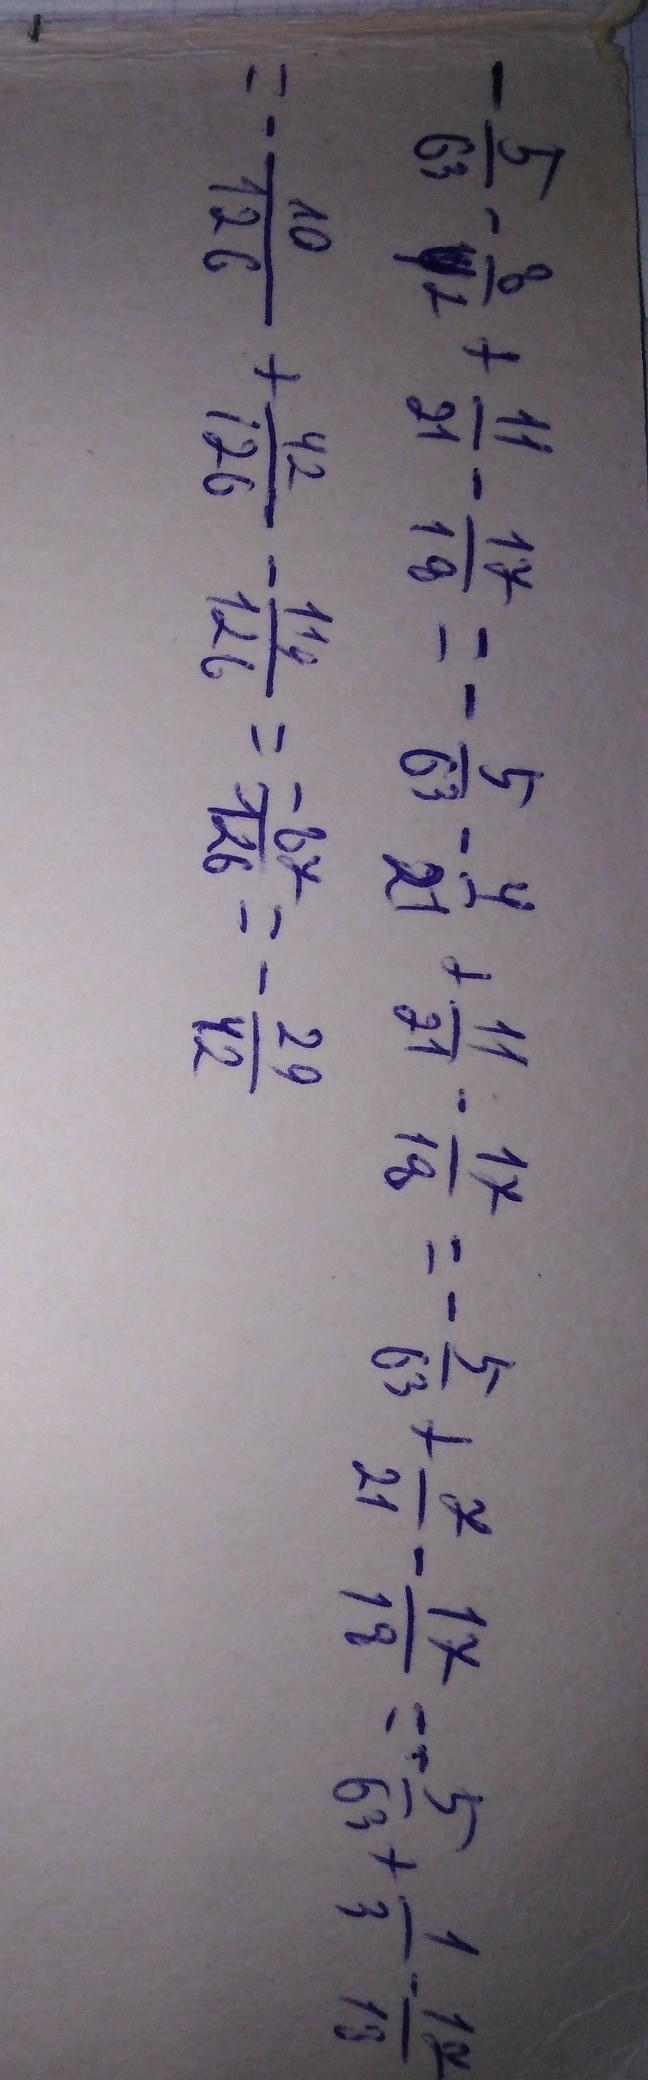 - 5/63 - 8/42 + 11/21 - 17/18 = - 5/63 - 4/21 + 11/21 - 17/18 = - 5/63 + 7/21 - 17/18 = - 5/63 + 1/3 - 17/18
= - 10/126 + 42/126 - 119/126 = -87/126 = - 29/42